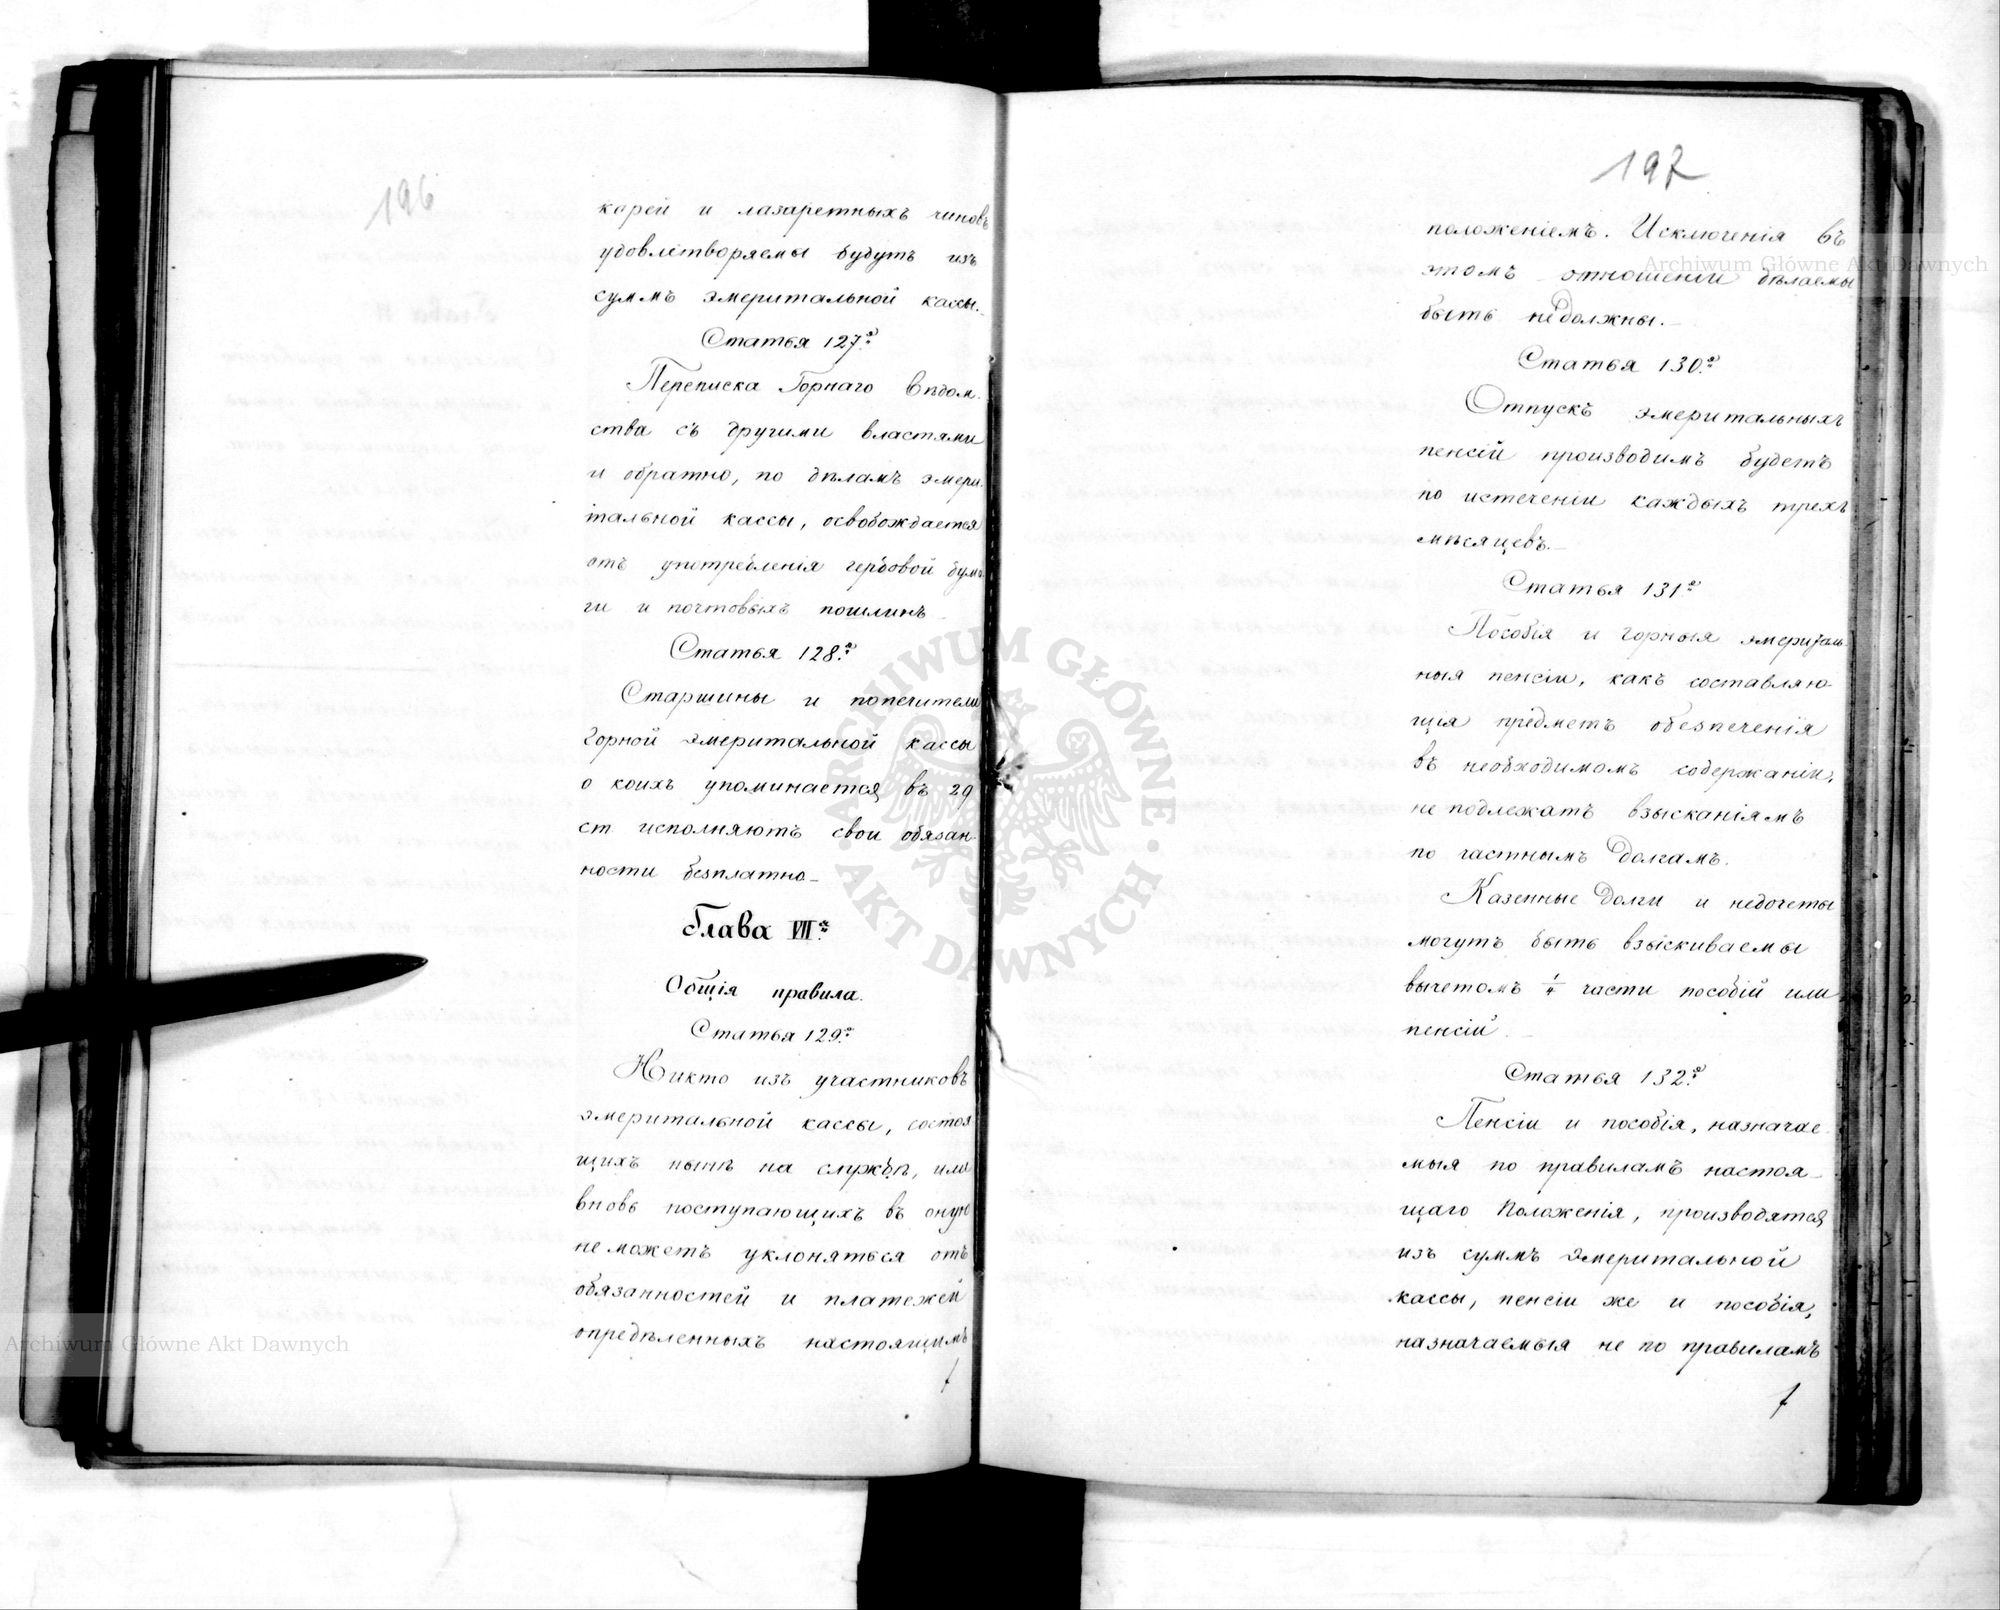 196
карей и лазаретныхъ чиновъ
удовлетворяемы будутъ изъ
суммъ эмеритальной кассы.
Статья 127а.
Переписка Горнаго Вѣдом-
ства съ другими властями
и обратно, по дѣламъ эмери-
тальной кассы, освобождается
отъ употребленія гербовой бума-
ги и почтовыхъ пошлинъ
Статья 128а.
Старшины и попечители
Горной эмеритальной кассы
о коихъ упоминается въ 29
ст. исполняютъ свои обязан-
ности безплатно.
Глава VII.ая
Общія правила.
Статья 129а.
Никто изъ участниковъ
эмеритальной кассы, состоя
щихъ нынѣ на службѣ, или
вновь поступающихъ въ оную
не можетъ уклоняться отъ
обязанностей и платежей
опредѣленныхъ настоящимъ
197
положеніемъ. Исключенія въ
этомъ отношеніи дѣлаемы
быть не должны.
Статья 130а.
Отпускъ эмеритальныхъ
пенсій производимъ будетъ
по истеченіи каждыхъ трехъ
мѣсяцевъ.
Статья 131а
Пособія и горныя эмериталь-
ныя пенсіи, какъ составляю-
щія предметъ обезпеченія
въ необходимомъ содержаніи,
не подлежатъ взысканіямъ
по частнымъ долгамъ.
Казенные долги и недочеты
могутъ быть взыскиваемы
вычетомъ 1/4 части пособій или
пенсій.
Статья 132а.
Пенсіи и пособія, назначае-
мыя по правиламъ настоя-
щаго Положенія, производятся
изъ суммъ эмеритальной
кассы, пенсіи же и пособія,
назначаемыя не по правиламъ
ARCHIWUM GŁÓWNE AKT DAWNYCH
Archiwum Główne Akt Dawnych
Archiwum Główne Akt Dawnych